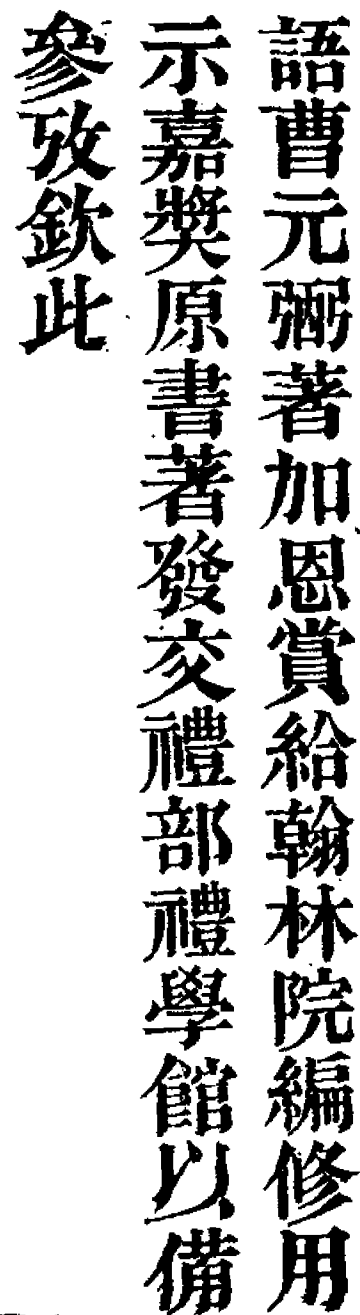 語曹元弼著加恩賞給翰林院編修用
示嘉奬原書著發交禮部禮學館以備
參攷欽此